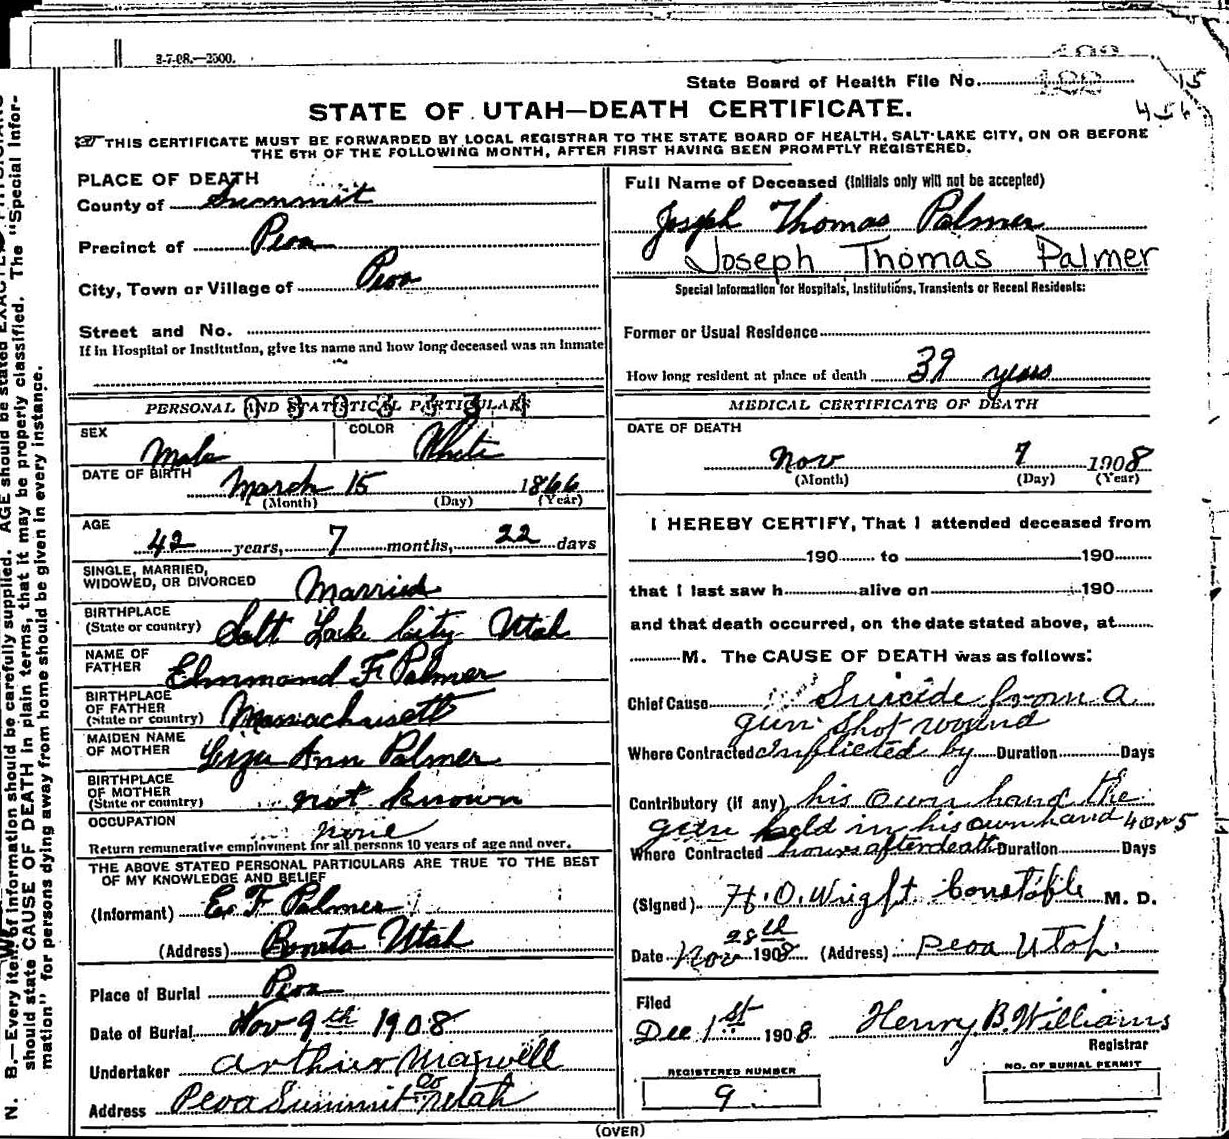 3-7-08.—2500.
State Board of Health File No.
15
456
STATE OF UTAH—DEATH CERTIFICATE.
THIS CERTIFICATE MUST BE FORWARDED BY LOCAL REGISTRAR TO THE STATE BOARD OF HEALTH, SALT LAKE CITY, ON OR BEFORE
THE 5TH OF THE FOLLOWING MONTH, AFTER FIRST HAVING BEEN PROMPTLY REGISTERED.
PLACE OF DEATH
County of Summit
Precinct of Peoa
City, Town or Village of Peoa
Street and No.
If in Hospital or Institution, give its name and how long deceased was an inmate
PERSONAL AND STATISTICAL PARTICULARS
SEX Male COLOR White
DATE OF BIRTH March 15 1866
(Month) (Day) (Year)
AGE
42 years, 7 months, 22 days
SINGLE, MARRIED,
WIDOWED, OR DIVORCED Married
BIRTHPLACE
(State or country) Salt Lake City Utah
NAME OF
FATHER Elmmond F Palmer
BIRTHPLACE
OF FATHER
(State or country) Massachusett
MAIDEN NAME
OF MOTHER Liza Ann Palmer
BIRTHPLACE
OF MOTHER
(State or country) not known
OCCUPATION none
Return remunerative employment for all persons 10 years of age and over.
THE ABOVE STATED PERSONAL PARTICULARS ARE TRUE TO THE BEST
OF MY KNOWLEDGE AND BELIEF
(Informant) E F Palmer
(Address) Boneta Utah
Place of Burial Peoa
Date of Burial Nov 9th 1908
Undertaker Arthur Maxwell
Address Peoa Summit Co Utah
Full Name of Deceased (Initials only will not be accepted)
Joseph Thomas Palmer
Joseph Thomas Palmer
Special Information for Hospitals, Institutions, Transients or Recent Residents:
Former or Usual Residence
How long resident at place of death 39 years
MEDICAL CERTIFICATE OF DEATH
DATE OF DEATH
Nov 7 1908
(Month) (Day) (Year)
I HEREBY CERTIFY, That I attended deceased from
190 to 190
that I last saw h alive on 190
and that death occurred, on the date stated above, at
M. The CAUSE OF DEATH was as follows:
Chief Cause Suicide from a
gun shot wound
Where Contracted inflicted by Duration Days
Contributory (if any) his own hand the
gun held in his own hand 4 or 5
Where Contracted hours after death Duration Days
(Signed) H. O. Wright Constable M. D.
Date Nov 28th 1908 (Address) Peoa Utah.
Filed
Dec 1st 1908 Henry B. Williams
Registrar
REGISTERED NUMBER
9
NO. OF BURIAL PERMIT
(OVER)
N. B.—Every item of information should be carefully supplied. AGE should be stated
should state CAUSE OF DEATH in plain terms, that it may be properly classified. The "Special Infor-
mation" for persons dying away from home should be given in every instance.